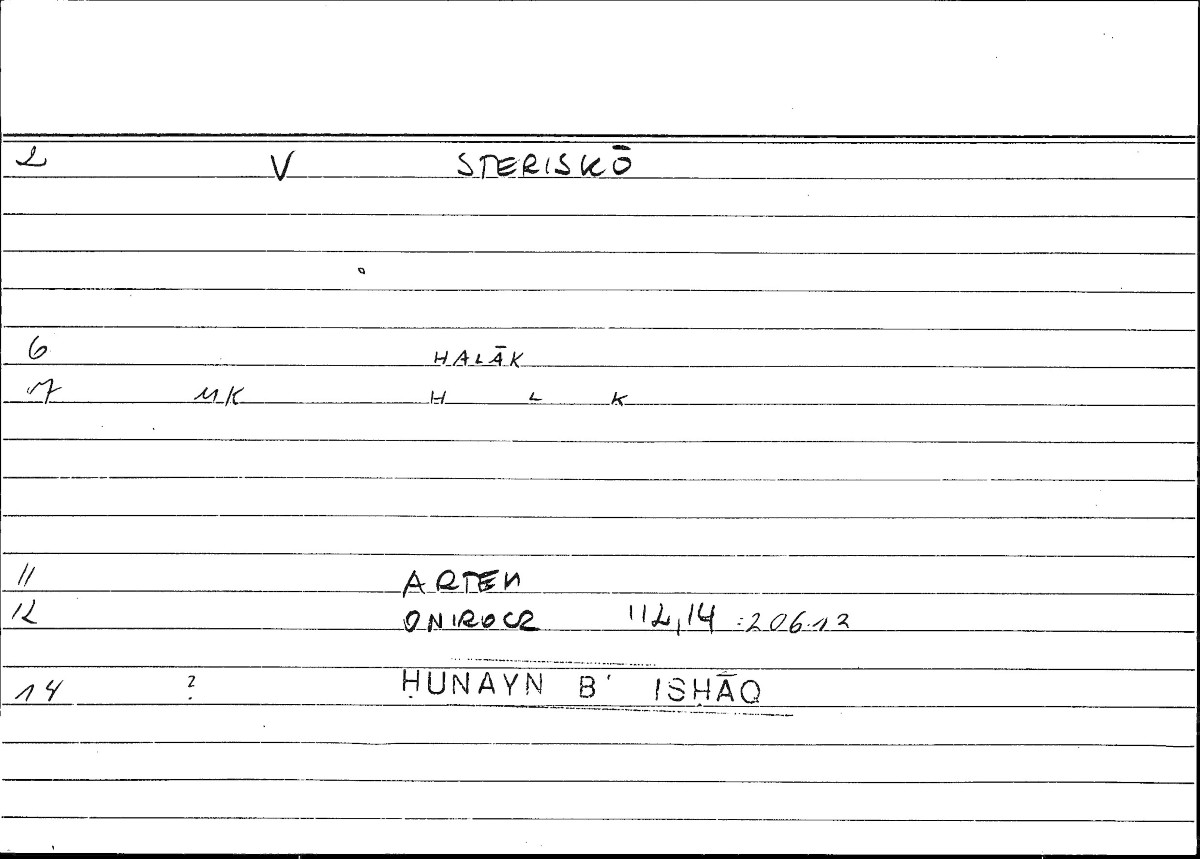 2 V STERISKŌ
6 HALĀK
7 MK H L K
11 ARTEM
12 ONIROCR 112,14 :206.12
14 ? ḤUNAYN B' ISḤĀQ